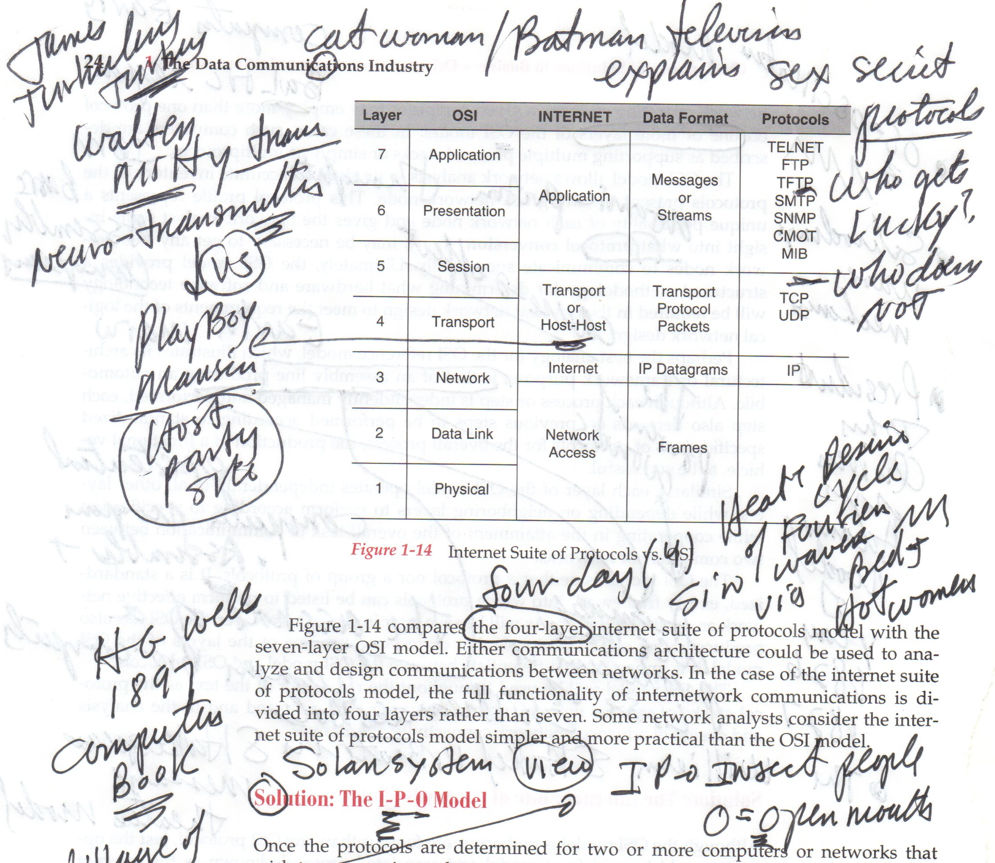 James
24 The Data Communications Industry
cat woman / Batman
explains sex secret
protocols
Walter
Mitty trans
neuro-transmitters
vs
Play Boy
Mansion
Host
party
site
who gets
Lucky?
who does
not
Layer OSI INTERNET Data Format Protocols
7 Application Application Messages or Streams TELNET
FTP
TFTP
SMTP
SNMP
CMOT
MIB
6 Presentation
5 Session Transport or Host-Host Transport Protocol Packets TCP
UDP
4 Transport
3 Network Internet IP Datagrams IP
2 Data Link Network Access Frames
1 Physical
Heat Desire
cycle
of Fourier
Sin / waves
via Beds
Hot women
Figure 1-14 Internet Suite of Protocols vs. OSI
four-day
Figure 1-14 compares the four-layer internet suite of protocols model with the
seven-layer OSI model. Either communications architecture could be used to ana-
lyze and design communications between networks. In the case of the internet suite
of protocols model, the full functionality of internetwork communications is di-
vided into four layers rather than seven. Some network analysts consider the inter-
net suite of protocols model simpler and more practical than the OSI model.
HG wells
1897
computers
Book
village of
Solar system view I-P-O Insect people
O = open mouths
Solution: The I-P-O Model
Once the protocols are determined for two or more computers or networks that